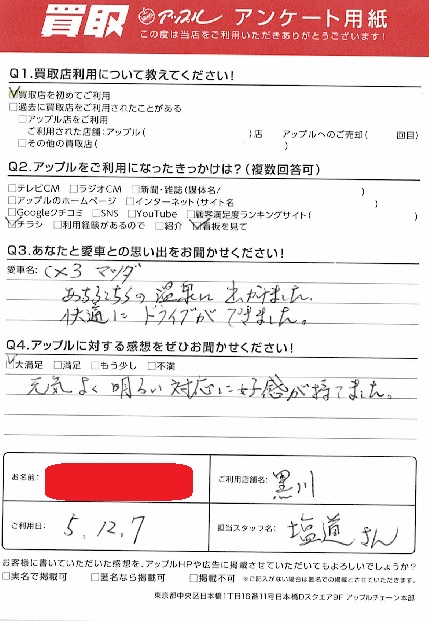 買取 アップル アンケート用紙
この度は当店をご利用いただきありがとうございます!
Q1.買取店利用について教えてください!
☑買取店を初めてご利用
□過去に買取店をご利用されたことがある
□アップル店をご利用
ご利用された店舗:アップル( )店 アップルへのご売却( 回目)
□その他の買取店( )
Q2.アップルをご利用になったきっかけは?(複数回答可)
□テレビCM □ラジオCM □新聞・雑誌(媒体名/ )
□アップルのホームページ □インターネット(サイト名 )
□Googleクチコミ □SNS □YouTube □顧客満足度ランキングサイト( )
☑チラシ □利用経験があるので □紹介 ☑看板を見て
Q3.あなたと愛車との思い出をお聞かせください!
愛車名: CX3 マツダ
あちらこちらの温泉に出かけました。
快適にドライブができました。
Q4.アップルに対する感想をぜひお聞かせください!
☑大満足 □満足 □もう少し □不満
元気よく明るい対応に好感が持てました。
お名前:
ご利用店舗名: 黒川
ご利用日: 5.12.7
担当スタッフ名: 塩道さん
お客様に書いていただいた感想を、アップルHPや広告に掲載させていただいてもよろしいでしょうか?
□実名で掲載可 □匿名なら掲載可 □掲載不可 ※ご記入がない場合は匿名での掲載とさせていただきます。
東京都中央区日本橋1丁目16番11号日本橋Dスクエア9F アップルチェーン本部